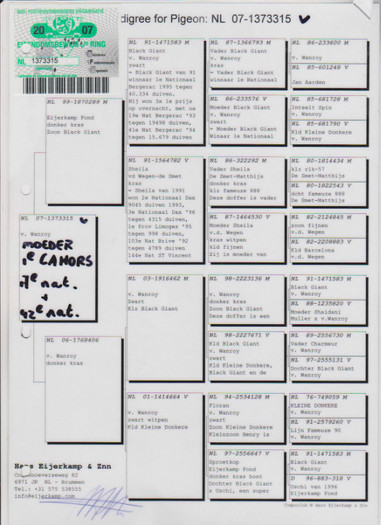 digree for Pigeon: NL 07-1373315
20 07
EIGENDOMSBEWIJS RING
NL 1373315
NL 99-1870289 M
Eijerkamp Fond
donker kras
Zoon Black Giant
NL 07-1373315
v. Wanroy
MOEDER
1e CAHORS
nat.
nat.
NL 06-1768406
v. Wanroy
donker kras
NL 91-1471583 M
Black Giant
v. Wanroy
zwart
= Black Giant van 91
winnaar le Nationaal
Bergerac 1995 tegen
40.334 duiven.
Hij won 3x 1e prijs
op overnacht, met oa
19e Nat Bergerac '93
tegen 19498 duiven,
41e Nat Bergerac '94
tegen 15.679 duiven
NL 91-1564782 V
Sheila
vd Wegen-de Smet
kras
= Sheila van 1991
won 2e Nationaal Dax
9045 duiven 1993,
3e Nationaal Dax '96
tegen 4315 duiven,
1e Prov Limoges '95
tegen 998 duiven,
103e Nat Brive '92
tegen 4789 duiven,
144e Nat ST Vincent
NL 03-1916462 M
v. Wanroy
Zwart
Kls Black Giant
NL 01-1414664 V
v. Wanroy
zwart witpen
Kld Kleine Donkere
NL 87-1366793 M
Vader Black Giant
v. Wanroy
kras
= Vader Black Giant
winnaar le Nationaal
NL 86-233576 V
Moeder Black Giant
v. Wanroy
zwart
= Moeder Black Giant
Winaar le Nationaal
NL 86-322292 M
Vader Sheila
De Smet-Matthijs
donker kras
kls Fameuze 888
Deze doffer is vader
NL 87-1464530 V
Moeder Sheila
v.d. Wegen
kras witpen
Kld fijnen
Zij is moeder van
NL 98-2223136 M
v. Wanroy
donker kras
Zoon Black Giant
Deze doffer is een
NL 98-2227671 V
Kld Black Giant
v. Wanroy
zwart
Kld Kleine Donkere,
Black Giant en de
NL 94-2534128 M
Floran
v. Wanroy
zwart
Zoon Kleine Donkere
Kleinzoon Henry is
NL 97-2556647 V
Sproetkop
Eijerkamp Fond
donker kras bont
Dochter Black Giant
x Uschi, een super
NL 86-233600 M
v. Wanroy
NL 85-601249 V
Jan Aarden
NL 85-681728 M
v. Wanroy
NL 85-681790 V
Kld Kleine Donkere
v. Wanroy
NL 80-1814434 M
klz rik-57
De Smet-Matthijs
NL 80-1822543 V
dcht fameuze 888
De Smet-Matthijs
NL 82-2124845 M
zoon fijnen
v.d. Wegen
NL 82-2208883 V
Kld Barcelona
v.d. Wegen
NL 91-1471583 M
Black Giant
v. Wanroy
NL 88-1235820 V
Moeder Shaidani
Muller x v.Wanroy
NL 89-2556730 M
Vader Charmeur
v. Wanroy
NL 97-2555131 V
Dochter Black Giant
v. Wanroy
NL 76-749059 M
KLEINE DONKERE
v. Wanroy
NL 91-2579260 V
Lijn Fameuze 90
v. Wanroy
NL 91-1471583 M
Black Giant
v. Wanroy
D 96-883-318 V
Uschi van 1996
Eijerkamp Fond
Hans Eijerkamp & Znn
6971 JP NL - Brummen
Tel.: +31 575 538555
info@eijerkamp.com
Compuclub © door Eijerkamp & Znn